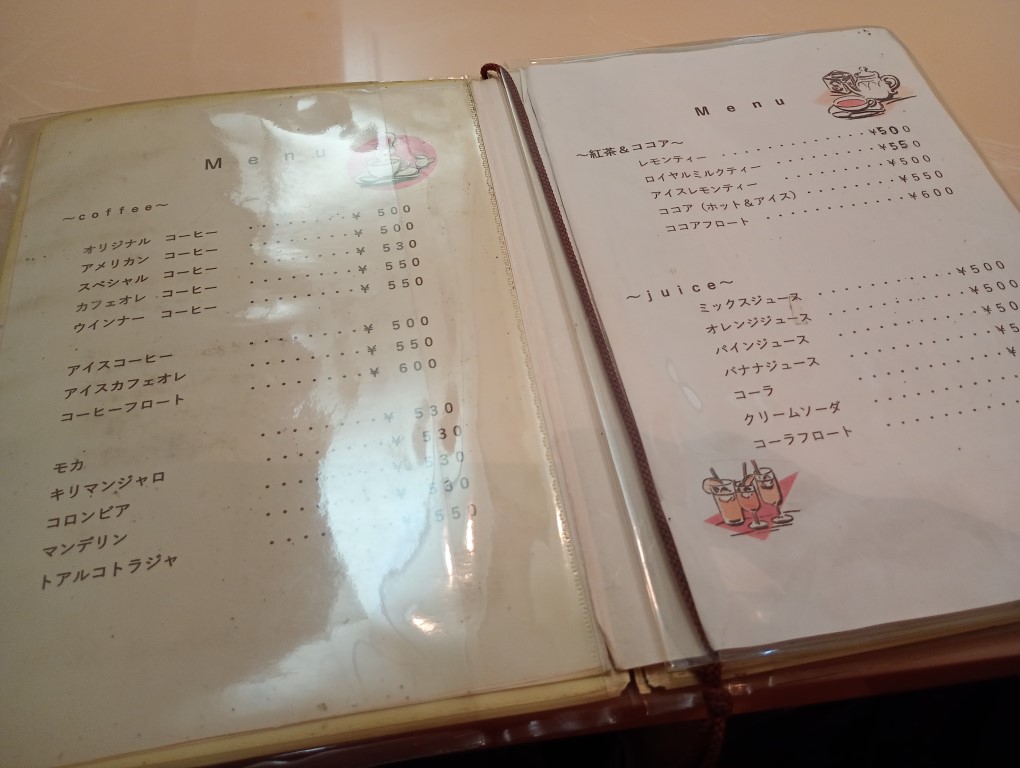 Menu
～coffee～
オリジナル コーヒー ・・・・・・・・・・ ¥ 500
アメリカン コーヒー ・・・・・・・・・・ ¥ 500
スペシャル コーヒー ・・・・・・・・・・ ¥ 530
カフェオレ コーヒー ・・・・・・・・・・ ¥ 550
ウインナー コーヒー ・・・・・・・・・・ ¥ 550
アイスコーヒー ・・・・・・・・・・ ¥ 500
アイスカフェオレ ・・・・・・・・・・ ¥ 550
コーヒーフロート ・・・・・・・・・・ ¥ 600
モカ ・・・・・・・・・・ ¥ 530
キリマンジャロ ・・・・・・・・・・ ¥ 530
コロンビア ・・・・・・・・・・ ¥ 530
マンデリン ・・・・・・・・・・ ¥ 530
トアルコトラジャ ・・・・・・・・・・ 550
Menu
～紅茶＆ココア～
レモンティー ・・・・・・・・・・ ¥500
ロイヤルミルクティー ・・・・・・・・・・ ¥550
アイスレモンティー ・・・・・・・・・・ ¥500
ココア（ホット＆アイス） ・・・・・・・・・・ ¥550
ココアフロート ・・・・・・・・・・ ¥600
～juice～
ミックスジュース ・・・・・・・・・・ ¥500
オレンジジュース ・・・・・・・・・・ ¥500
パインジュース ・・・・・・・・・・ ¥50
バナナジュース ・・・・・・・・・・ ¥5
コーラ ・・・・・・・・・・ ¥
クリームソーダ ・・・・・・・・・・
コーラフロート ・・・・・・・・・・